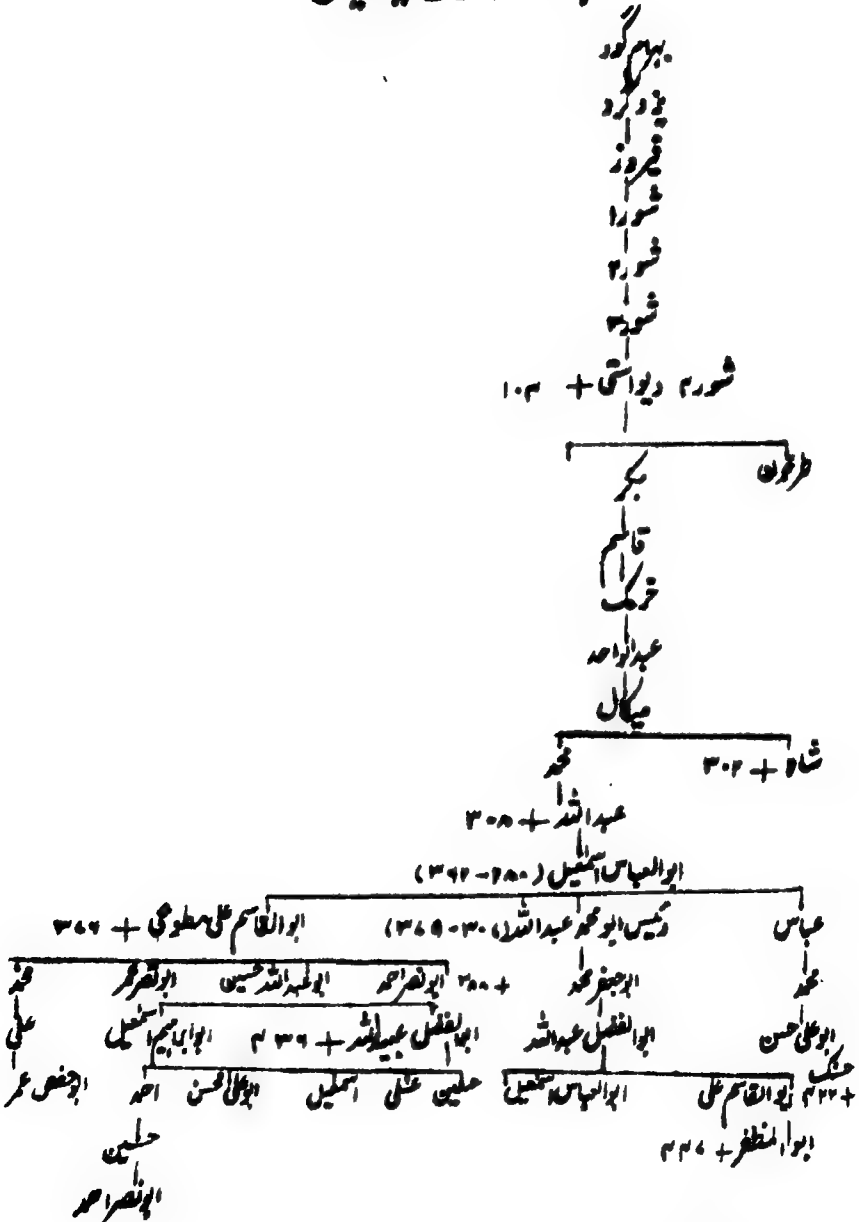 بهرام گور
یزدگرد
فیروز
شور۱
شور۲
شور۳
شور۴ دیواستی + ۱۰۴
طرخون
بکر
قاسم
عبدالواحد
میکال
شاه + ۳۰۲
محمد
عبدالله + ۳۰۸
ابوالعباس اسمعیل (۲۸۰-۳۶۲)
عباس
رئیس ابومحمد عبدالله
ابوالقاسم علی مطوعی + ۳۷۶
محمد
ابوجعفر محمد
ابونصر احمد
ابوعبدالله حسین
ابونصر محمد
محمد
ابوعلی حسن حسنک + ۴۲۲
ابوالفضل عبدالله
ابوالفضل عبیدالله + ۴۳۶
ابوابراهیم اسمعیل
علی
ابوالقاسم علی
ابوالعباس اسمعیل
حسین
علی
اسمعیل
احمد
ابوحفص عمر
ابوالمظفر + ۴۴۷
حسین
ابونصر احمد